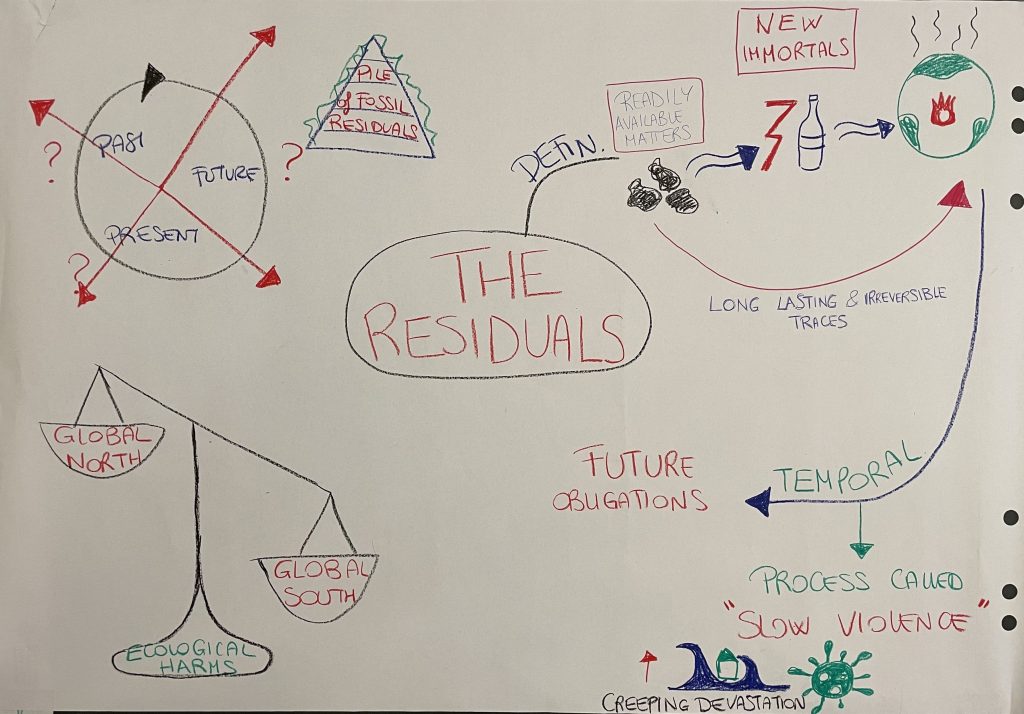 NEW
IMMORTALS
PILE
of FOSSIL
RESIDUALS
READILY
AVAILABLE
MATTERS
DEFIN.
PAST
?
FUTURE
?
PRESENT
?
THE
RESIDUALS
LONG LASTING & IRREVERSIBLE
TRACES
GLOBAL
NORTH
GLOBAL
SOUTH
ECOLOGICAL
HARMS
FUTURE
OBLIGATIONS
TEMPORAL
PROCESS CALLED
"SLOW VIOLENCE"
CREEPING DEVASTATION